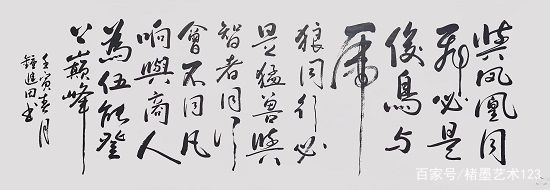 與鳳凰同
飛必是
俊鳥与
虎
狼同行必
是猛兽與
智者同行
會不同凡
响與高人
為伍能登
上巔峰
壬寅春月
鍾進田书
百家号/楮墨艺术123